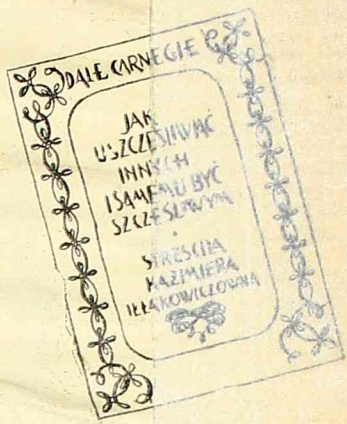 DALE CARNEGIE
JAK
USZCZĘŚLIWIAĆ
INNYCH
I SAMEMU BYĆ
SZCZĘŚLIWYM
STREŚCIŁA
KAZIMIERA
IŁŁAKOWICZÓWNA